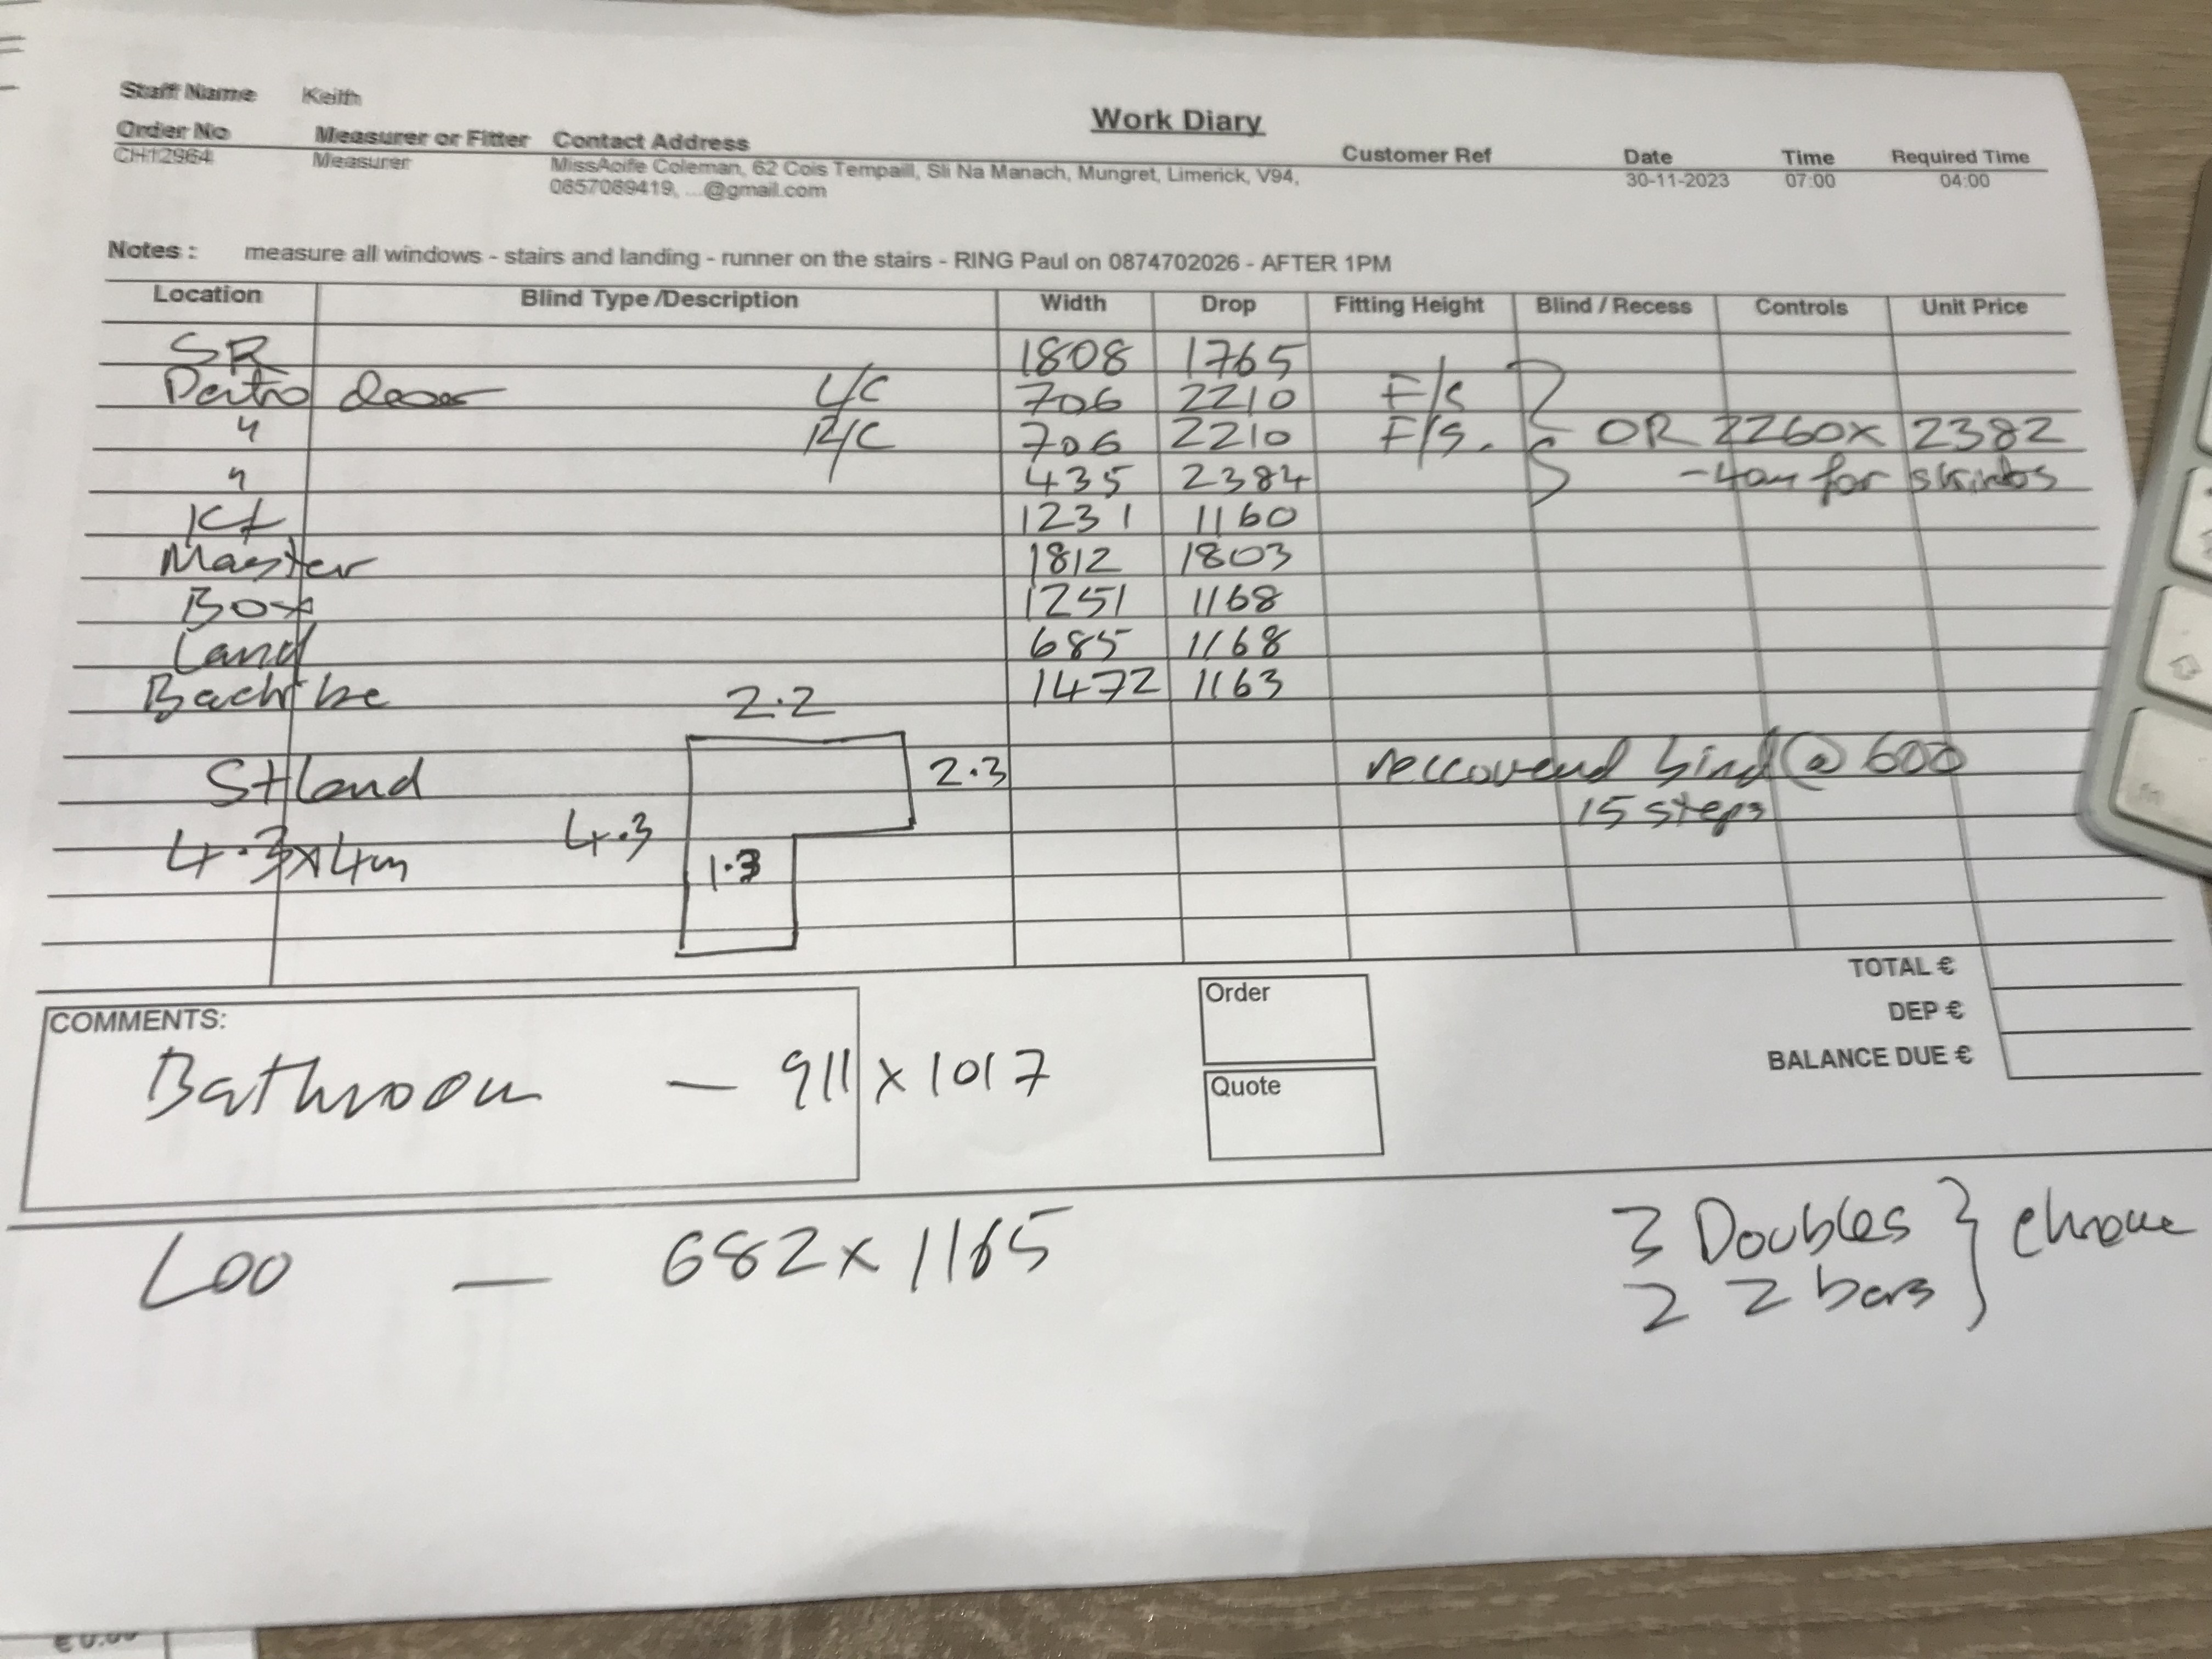 Staff Name Keith
Work Diary
Order No Measurer or Fitter Contact Address Customer Ref Date Time Required Time
CH12964 Measurer MissAoife Coleman, 62 Cois Tempaill, Sli Na Manach, Mungret, Limerick, V94, 30-11-2023 07:00 04:00
0857089419, ...@gmail.com
Notes : measure all windows - stairs and landing - runner on the stairs - RING Paul on 0874702026 - AFTER 1PM
Location Blind Type /Description Width Drop Fitting Height Blind / Recess Controls Unit Price
SR 1808 1765
Patio door L/C 706 2210 F/S
" R/C 706 2210 F/S. OR 2260x 2382
" 435 2384 - for
Kt 1231 1160
Master 1812 1803
Box 1251 1168
Land 685 1168
1472 1163
2.2
St Land 2.3 @ 600
15 steps
4.3x4m 4.3 1.3
TOTAL €
COMMENTS: Order DEP €
BALANCE DUE €
Bathroom — 911 x 1017
Quote
Loo — 682 x 1165 3 Doubles } chrome
2 2 bars
€0.00